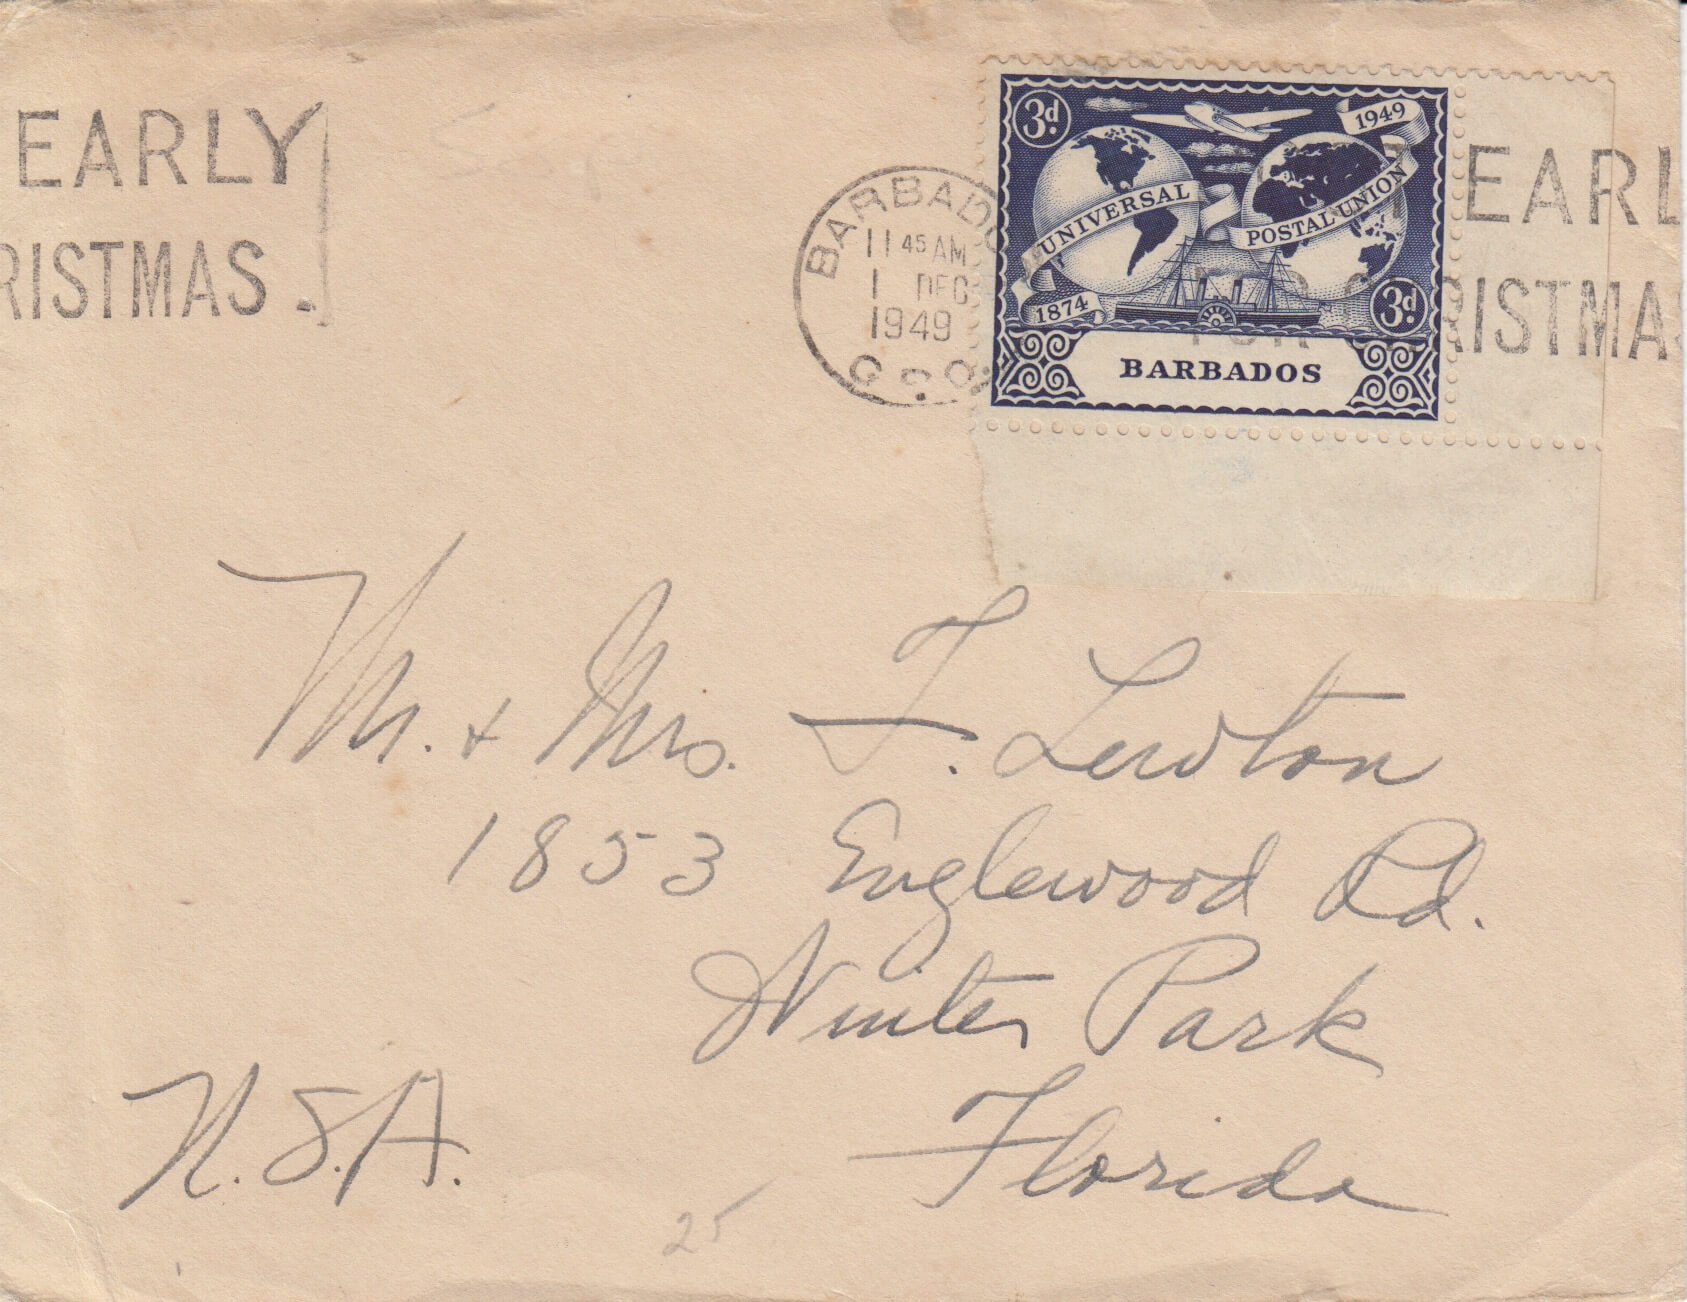 EARLY
RISTMAS.
BARBADO
11 45 AM
1 DEC
1949
G.P.O.
3d.
1949
UNIVERSAL
POSTAL UNION
1874
3d.
BARBADOS
T EARL
FOR CHRISTMAS
Mr. & Mrs. F. Lewton
1853 Englewood Rd.
Winter Park
Florida
U.S.A.
25